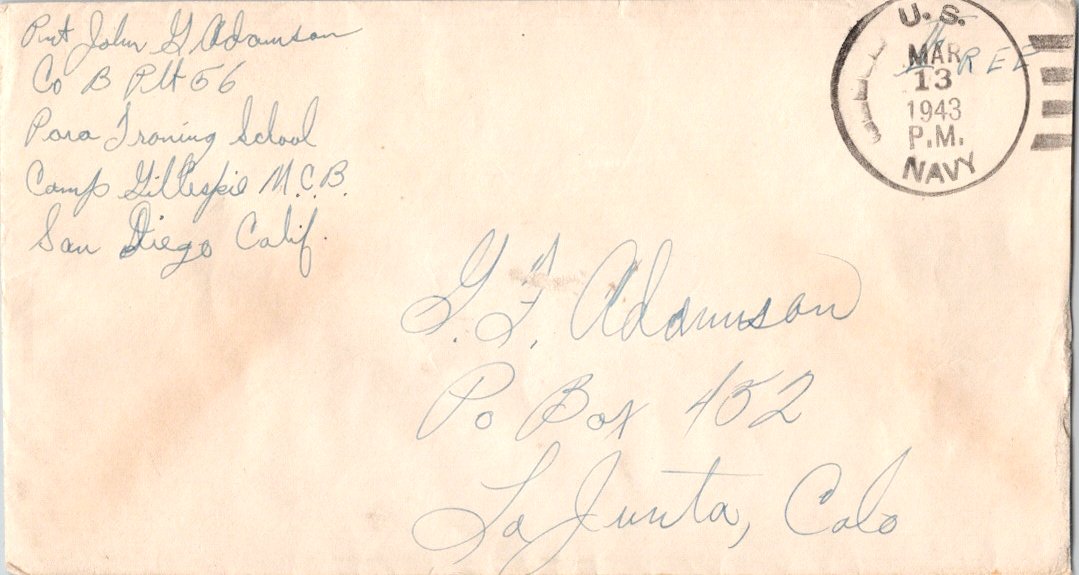 Pvt John G Adamson
Co B Plt 56
Para Traning School
Camp Gillespie M.C.B.
San Diego Calif.
U.S.
MAR
13
1943
P.M.
NAVY
FREE
G.F. Adamson
Po Box 452
La Junta, Colo